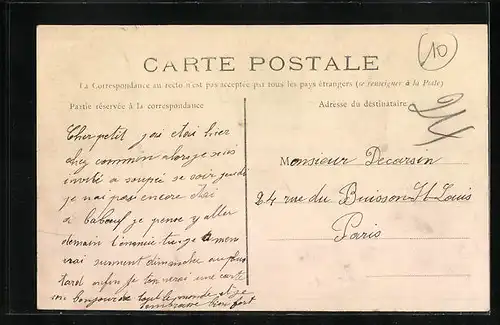 10
CARTE POSTALE
La Correspondance au recto n'est pas acceptée par tous les pays étrangers (se renseigner à la Poste)
Partie réservée à la correspondance
Adresse du destinataire
Cher petit j'ai étai hier
chez maman alors je suis
invité a soupé se soir jeudi
je n'ai pas encore étai
a babœuf je pense y aller
demain
men
rai surment dimanche au plus
tard enfin je ton verai une carte
bonjour de tout le monde et je
t'embrasse bien fort
Monsieur Decarsin
24 rue du Buisson St Louis
Paris